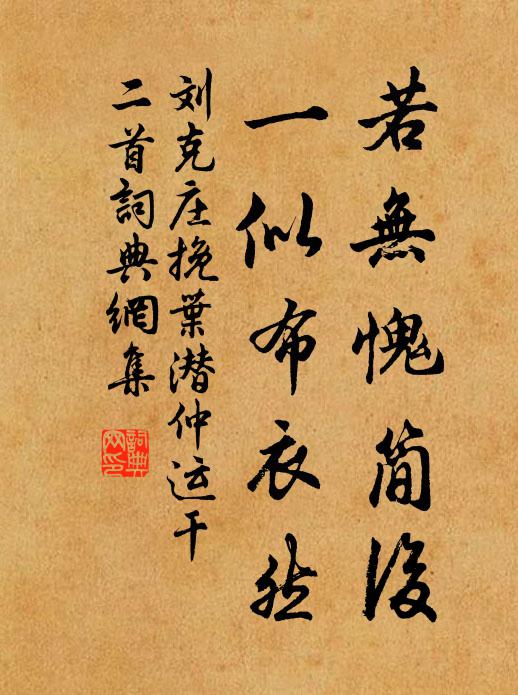 若無愧简後
一似布衣然
刘克庄挽葉潜仲运干
二首詞典網集
詞典
网印